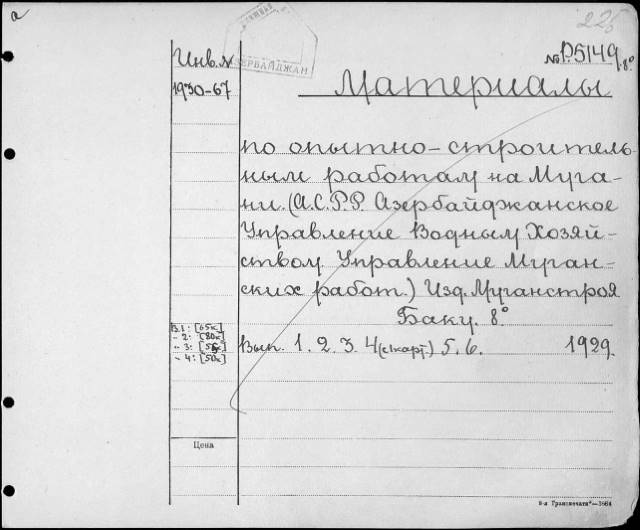 а
225
Инв. №
АЗЕРБАЙДЖАН
№ Р.5149 8°
1930-67
Материалы
по опытно-строитель-
ным работам на Муга-
ни. (А.С.Р.Р. Азербайджанское
Управление Водным Хозяй-
ством. Управление Муган-
ских работ.) Изд. Муганстроя
Баку. 8°
В.1: [65к]
" 2: [80к]
" 3: [55к]
" 4: [50к]
Вып. 1. 2. 3. 4 (с карт.) 5. 6. 1929.
Цена
8-я Транспечати"—3664